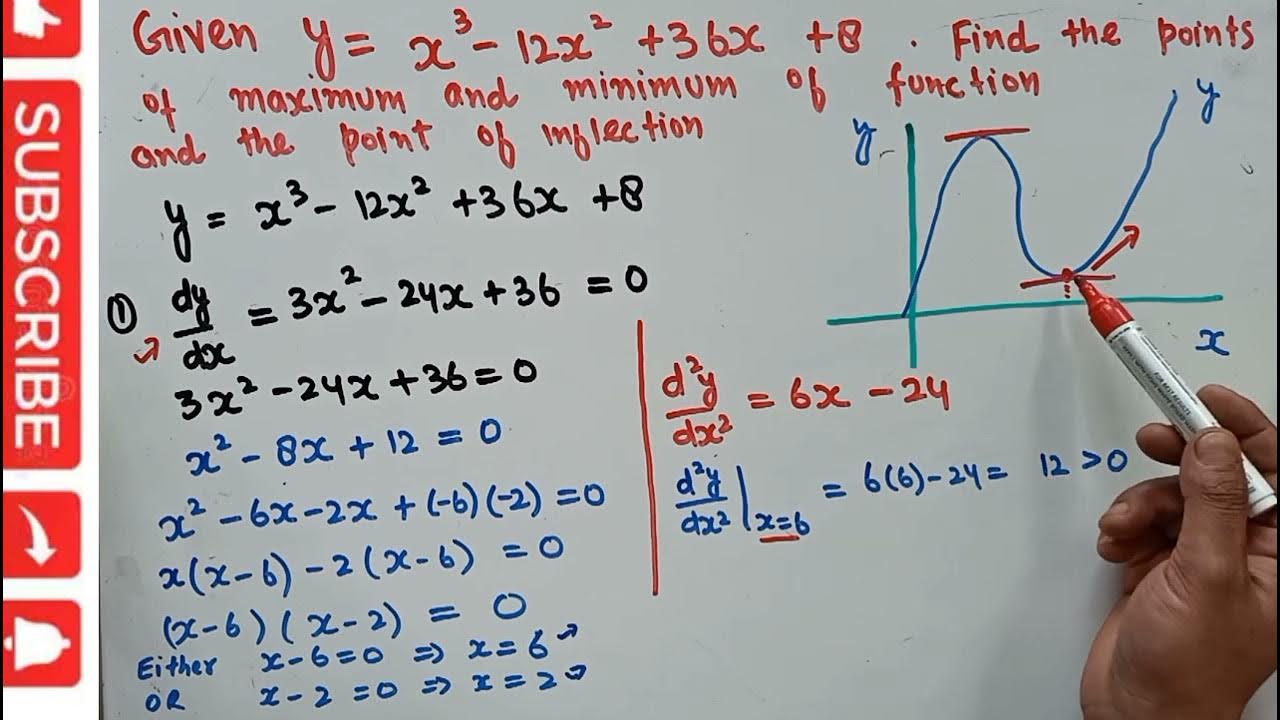 SUBSCRIBE
Given y = x³ - 12x² + 36x + 8 . Find the points
of maximum and minimum of function
and the point of inflection
y = x³ - 12x² + 36x + 8
① dy/dx = 3x² - 24x + 36 = 0
3x² - 24x + 36 = 0
x² - 8x + 12 = 0
x² - 6x - 2x + (-6)(-2) = 0
x(x-6) - 2(x-6) = 0
(x-6)(x-2) = 0
Either x-6=0 ⇒ x=6
OR x-2=0 ⇒ x=2
y
y
x
d²y/dx² = 6x - 24
d²y/dx² |x=6 = 6(6)-24 = 12 > 0